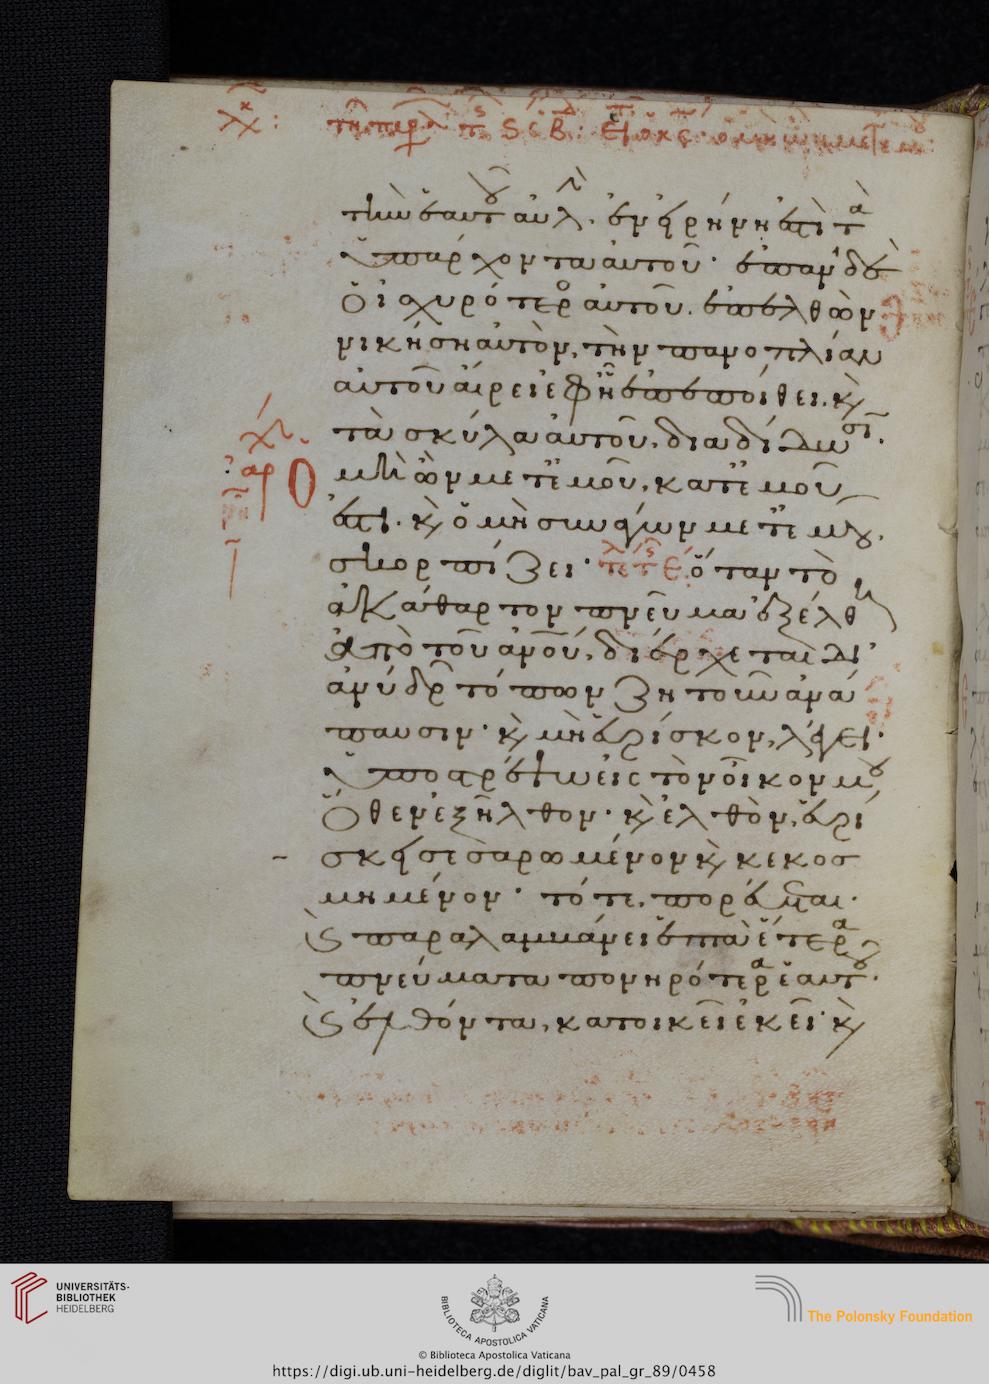 τὴν ἑαυτοῦ αὐλὴν. ἐν εἰρήνῃ ἐστὶ τὰ
ὑπάρχοντα αὐτοῦ· ἐπὰν δὲ
ὁ ἰσχυρότερος αὐτοῦ. ἐπελθὼν
νικήσῃ αὐτὸν, τὴν πανοπλίαν
αὐτοῦ αἴρει ἐφ ᾗ ἐπεποίθει. κ
τὰ σκύλα αὐτοῦ, διαδίδωσι.
Ο μὴ ὢν μετ ἐμοῦ, κατ ἐμοῦ
ἐστι. κ ὁ μὴ συνάγων μετ ἐμοῦ,
σκορπίζει· ὅταν τὸ
ἀκάθαρτον πνεῦμα ἐξέλθῃ
ἀπὸ τοῦ ἀνου, διέρχεται δι
ἀνύδρων τόπων ζητοῦν ἀνά
παυσιν· κ μὴ εὑρίσκον, λέγει·
ὑποστρέψω εἰς τὸν οἶκον μου
ὅθεν ἐξῆλθον· κ ἐλθὸν, εὑρί
σκει σεσαρωμένον κ κεκοσ
μημένον· τότε, πορεύεται.
κ παραλαμβάνει ἑπτὰ ἕτερα
πνεύματα πονηρότερα ἑαυτοῦ·
κ εἰσελθόντα, κατοικεῖ ἐκεῖ· κ
UNIVERSITÄTS-
BIBLIOTHEK
HEIDELBERG
BIBLIOTECA APOSTOLICA VATICANA
The Polonsky Foundation
© Biblioteca Apostolica Vaticana
https://digi.ub.uni-heidelberg.de/diglit/bav_pal_gr_89/0458